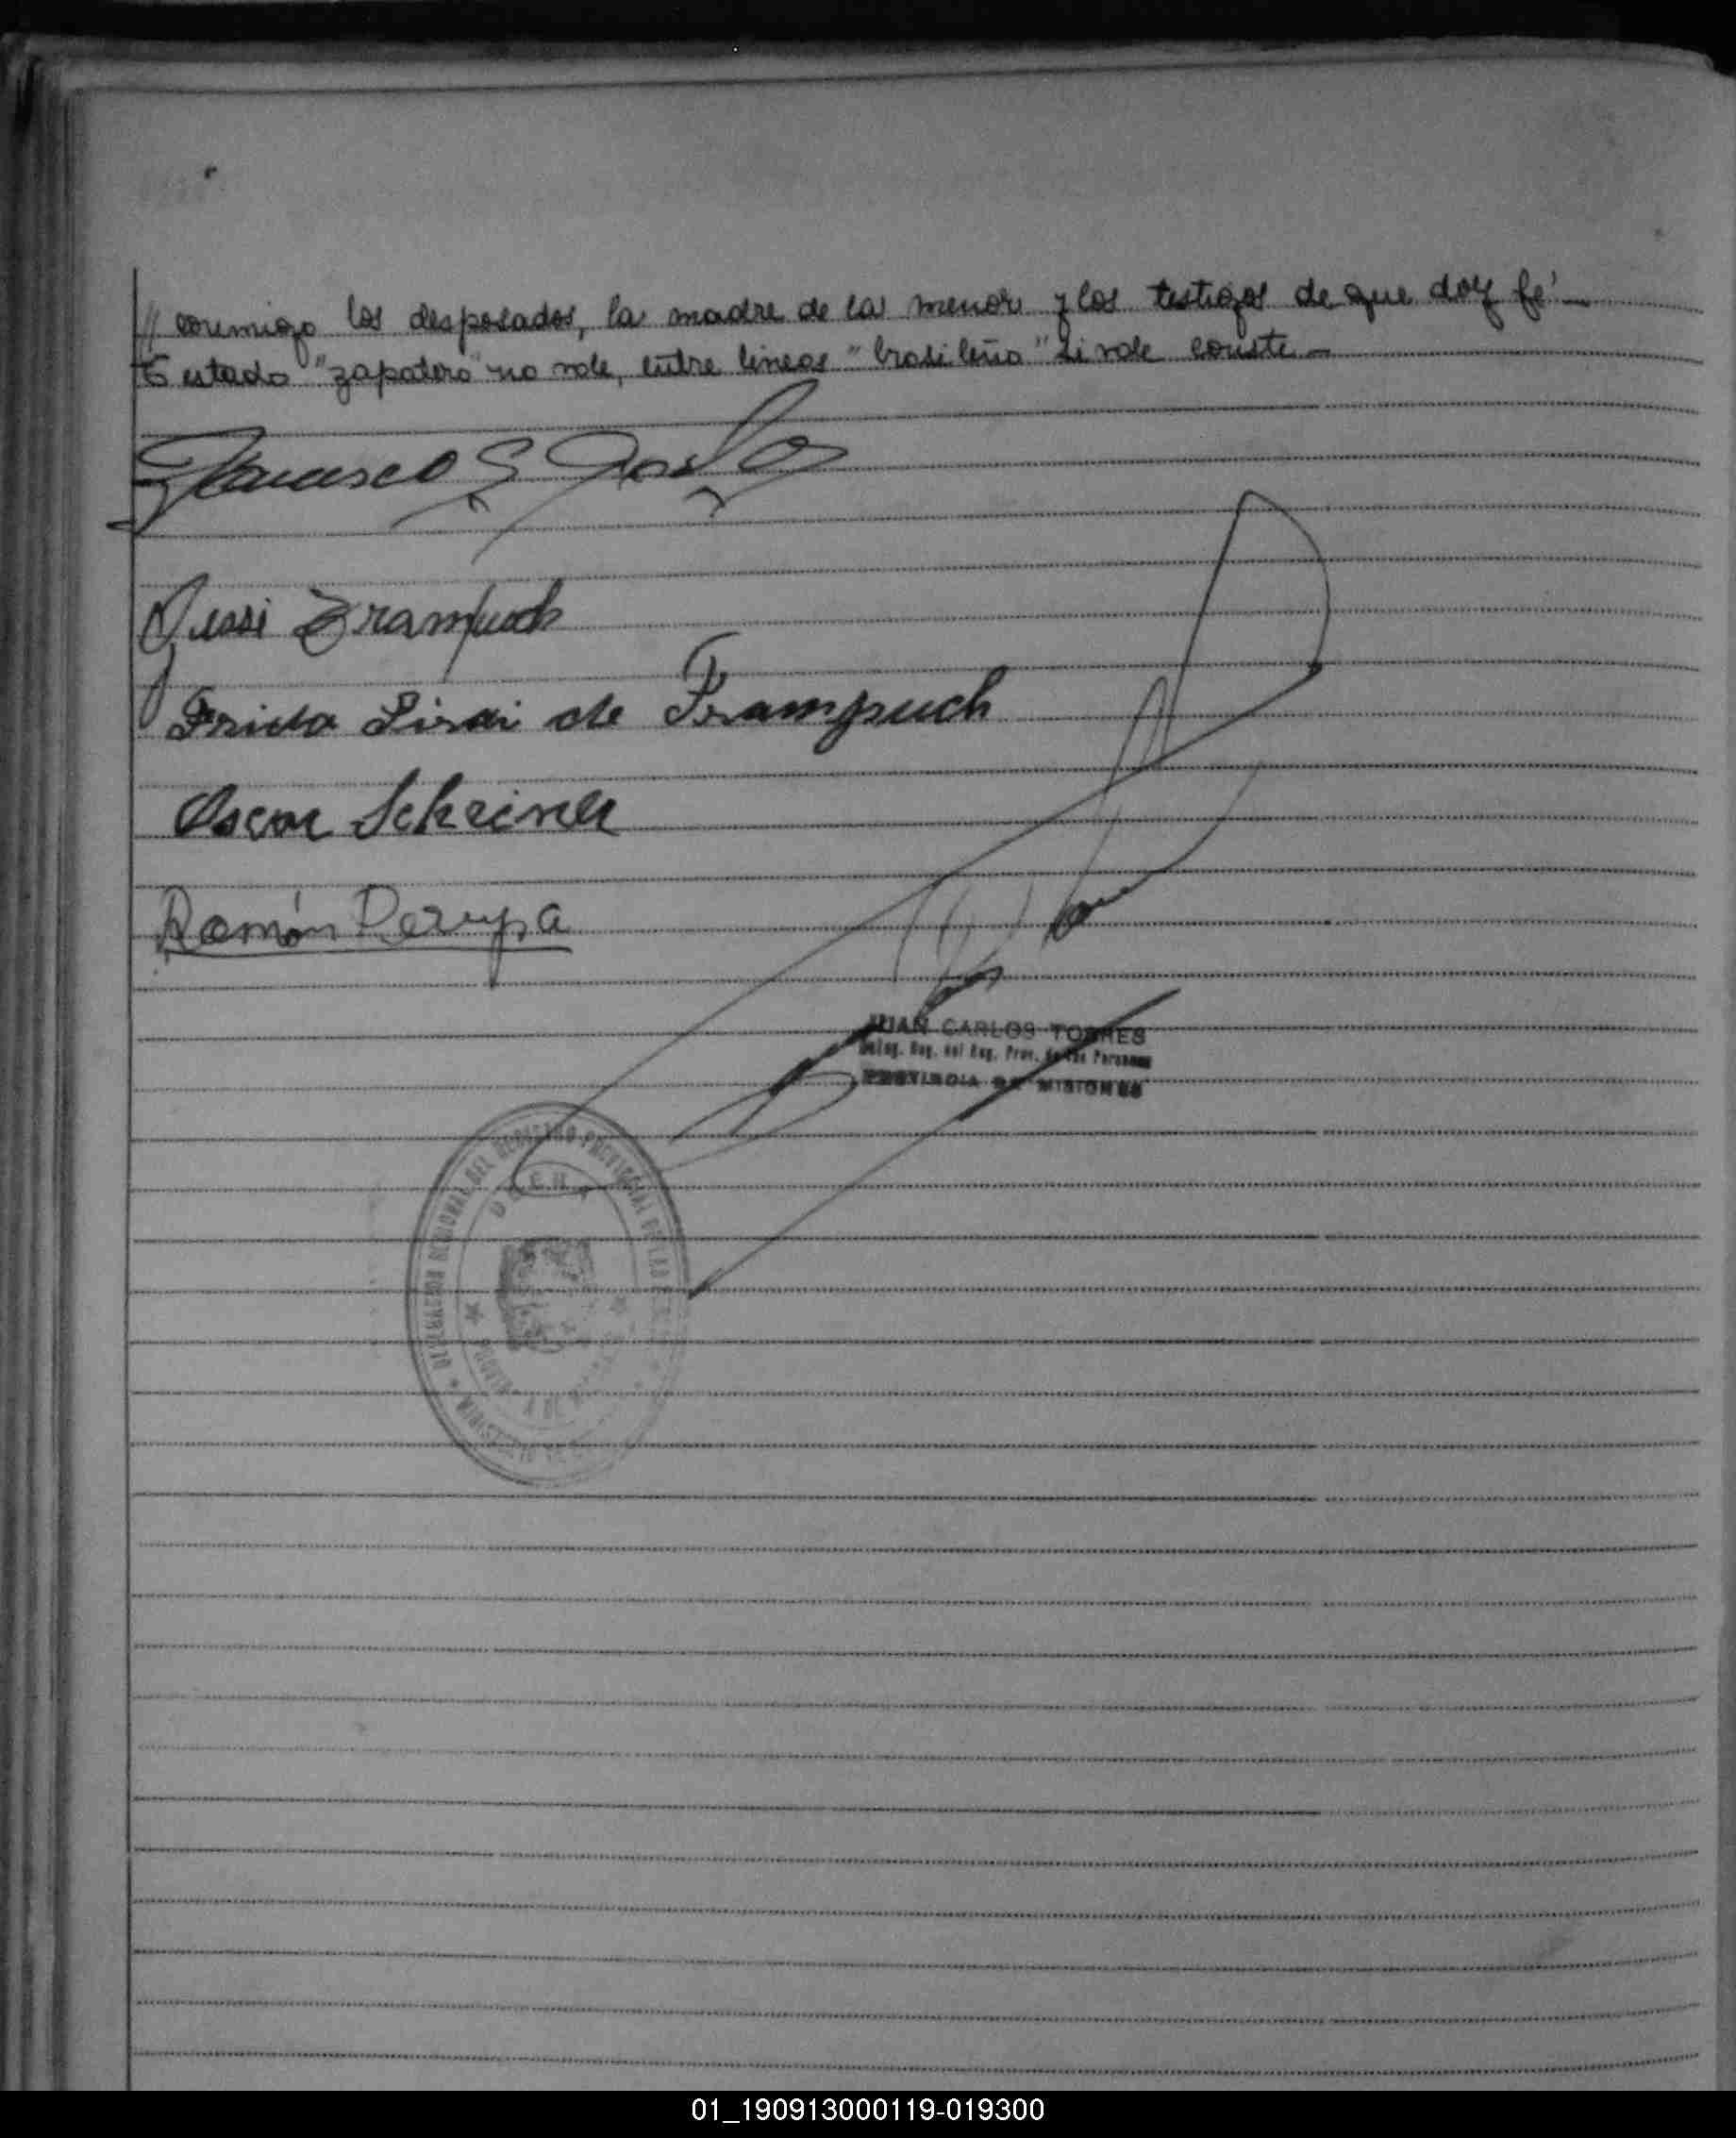 // conmigo los desposados, la madre de la menor y los testigos de que doy fé.—
Testado "zapatero" no vale, entre lineas "brasileña" si vale conste.—
Francisco S.
Frida de Prampuch
Oscar Scheiner
Ramón
JUAN CARLOS TORRES
Deleg. Reg. del Reg. Prov. de las Personas
PROVINCIA DE MISIONES
DELEGACION REGIONAL DEL REGISTRO PROVINCIAL DE LAS
OBERA
PROVINCIA DE
01_190913000119-019300